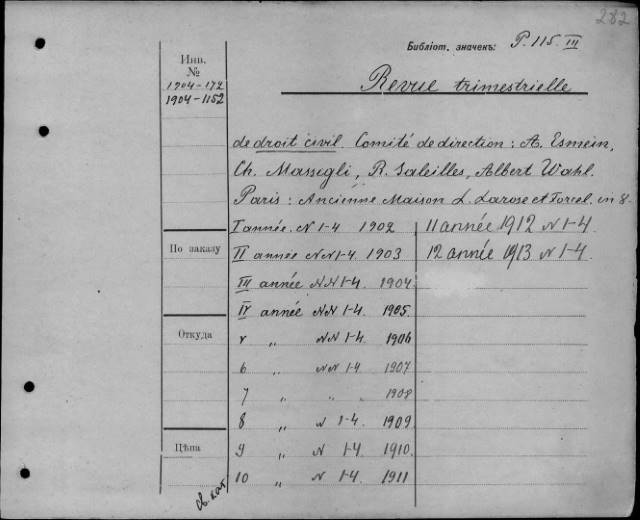 282
Библіот. значекъ: P. 115 III
Инв.
№
1904-172
1904-1152
Revue trimestrielle
de droit civil. Comité de direction: A. Esmein,
Ch. Massigli, R. Saleilles, Albert Wahl.
Paris: Ancienne Maison L. Larose et Forcel. in 8-
I année. N 1-4 1902
11 année 1912 N 1-4
По заказу
II année NN 1-4. 1903
12 année 1913 N 1-4.
III année NN 1-4. 1904
IV année NN 1-4. 1905.
Откуда
V " NN 1-4. 1906
6 " NN 1-4 1907
7 " " " 1908
8 " N 1-4. 1909
Цѣна
9 " N 1-4 1910.
10 " N 1-4 1911
св. кат